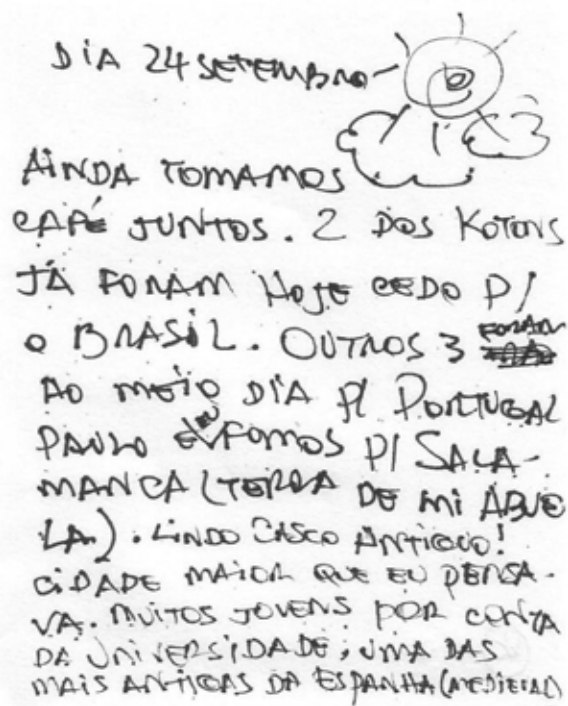 DIA 24 SETEMBRO
AINDA TOMAMOS
CAFÉ JUNTOS. 2 DOS KOTONS
JÁ FORAM HOJE CEDO P/
O BRASIL. OUTROS 3 FORAM
AO MEIO DIA P/ PORTUGAL
PAULO E EU FOMOS P/ SALA-
MANCA (TERRA DE MI ABUE
LA). LINDO CASCO ANTIGUO!
CIDADE MAIOR QUE EU PENSA-
VA. MUITOS JOVENS POR CONTA
DA UNIVERSIDADE, UMA DAS
MAIS ANTIGAS DA ESPANHA (MEDIEVAL)